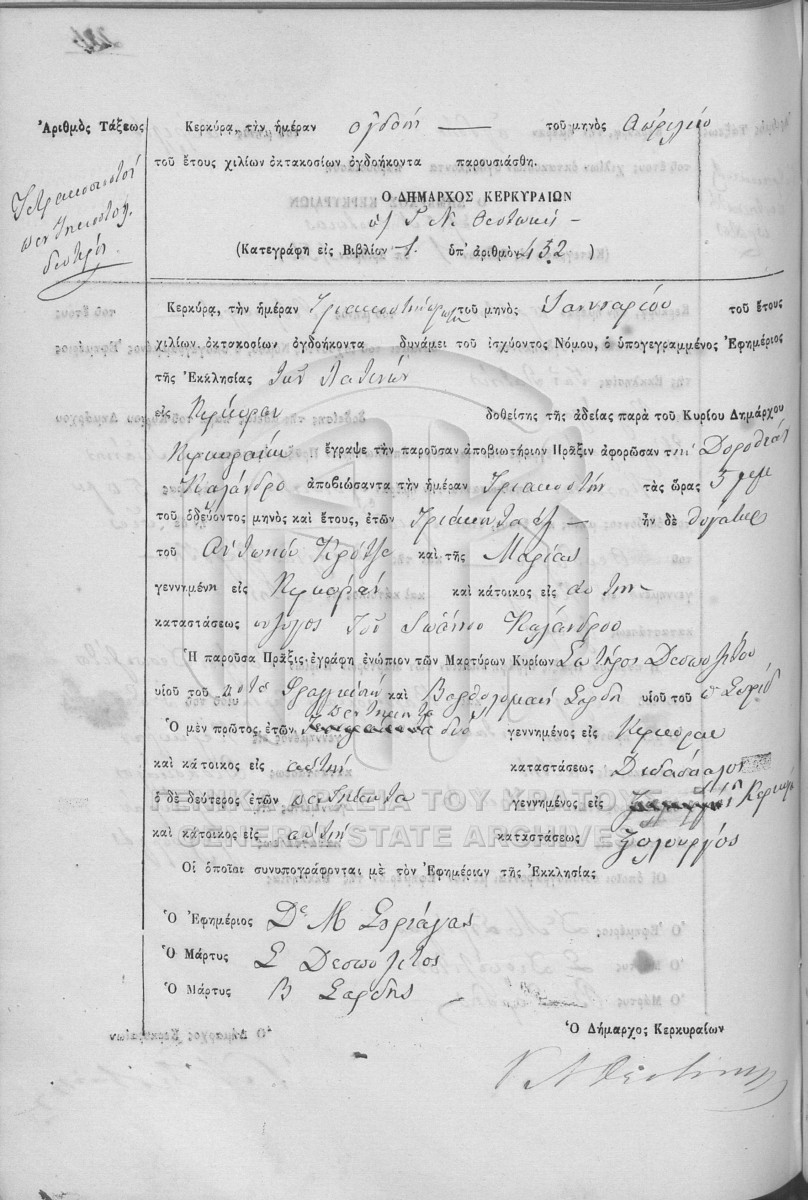 Ἀριθμὸς Τάξεως
Τετρακοσιοστοῦ
πεντηκοστοῦ
Κερκύρα, τὴν ἡμέραν ὀγδόη τοῦ μηνὸς Ἀπριλίου
τοῦ ἔτους χιλίων ὀκτακοσίων ὀγδοήκοντα παρουσιάσθη.
Ὁ ΔΗΜΑΡΧΟΣ ΚΕΡΚΥΡΑΙΩΝ
Γ. Ν. Θεοτόκης
(Κατεγράφη εἰς Βιβλίον 1. ὑπ' ἀριθμὸν 432)
Κερκύρα, τὴν ἡμέραν Τριακοστήπρωτη τοῦ μηνὸς Ἰανουαρίου τοῦ ἔτους
χιλίων ὀκτακοσίων ὀγδοήκοντα δυνάμει τοῦ ἰσχύοντος Νόμου, ὁ ὑπογεγραμμένος Ἐφημέριος
τῆς Ἐκκλησίας τῶν Λατίνων
εἰς Κέρκυραν δοθείσης τῆς ἀδείας παρὰ τοῦ Κυρίου Δημάρχου
Κερκυραίων ἔγραψε τὴν παροῦσαν ἀποβιωτήριον Πρᾶξιν ἀφορῶσαν τὴν Δοροθέαν
Καλάνδρο ἀποβιώσαντα τὴν ἡμέραν Τριακοστὴν τὰς ὥρας 5
τοῦ ὁδεύοντος μηνὸς καὶ ἔτους, ἐτῶν τριάκοντα ἕξ ἦν δὲ θυγάτηρ
τοῦ Ἀντωνίου Κρότζε καὶ τῆς Μαρίας
γεννημένη εἰς Κέρκυραν καὶ κάτοικος εἰς αὐτὴν
καταστάσεως σύζυγος τοῦ Ἰωάννου Καλάνδρου
Ἡ παροῦσα Πρᾶξις ἐγράφη ἐνώπιον τῶν Μαρτύρων Κυρίων Σωτῆρος Δεσπολίτου
υἱοῦ τοῦ ποτὲ Φραγκίσκου καὶ Βαρθολομαίου Σαρδη υἱοῦ τοῦ
Ὁ μὲν πρῶτος ἐτῶν πεντήκοντα δύο γεννημένος εἰς Κέρκυραν
καὶ κάτοικος εἰς αὐτὴν καταστάσεως Διδάσκαλος
ὁ δὲ δεύτερος ἐτῶν πεντήκοντα γεννημένος εἰς
καὶ κάτοικος εἰς αὐτὴν καταστάσεως Ξυλουργός
Οἱ ὁποῖοι συνυπογράφονται μὲ τὸν Ἐφημέριον τῆς Ἐκκλησίας
Ὁ Ἐφημέριος Dς Μ Σπριάγας
Ὁ Μάρτυς Σ Δεσπολίτος
Ὁ Μάρτυς Β Σαρδης
Ὁ Δήμαρχος Κερκυραίων
ΓΕΝΙΚΑ ΑΡΧΕΙΑ ΤΟΥ ΚΡΑΤΟΥΣ
GENERAL STATE ARCHIVES